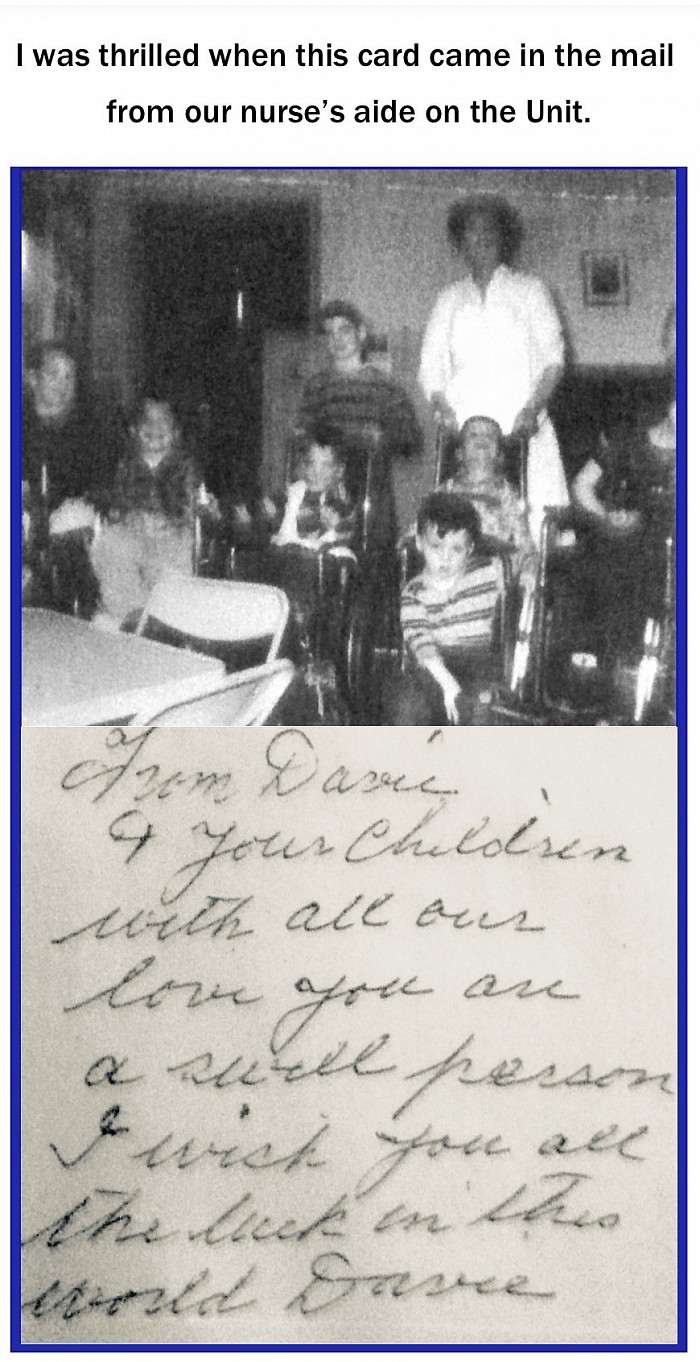 I was thrilled when this card came in the mail
from our nurse's aide on the Unit.
From Davie
& Your Children
with all our
love you are
a swell person
I wish you all
the luck in this
world Davie